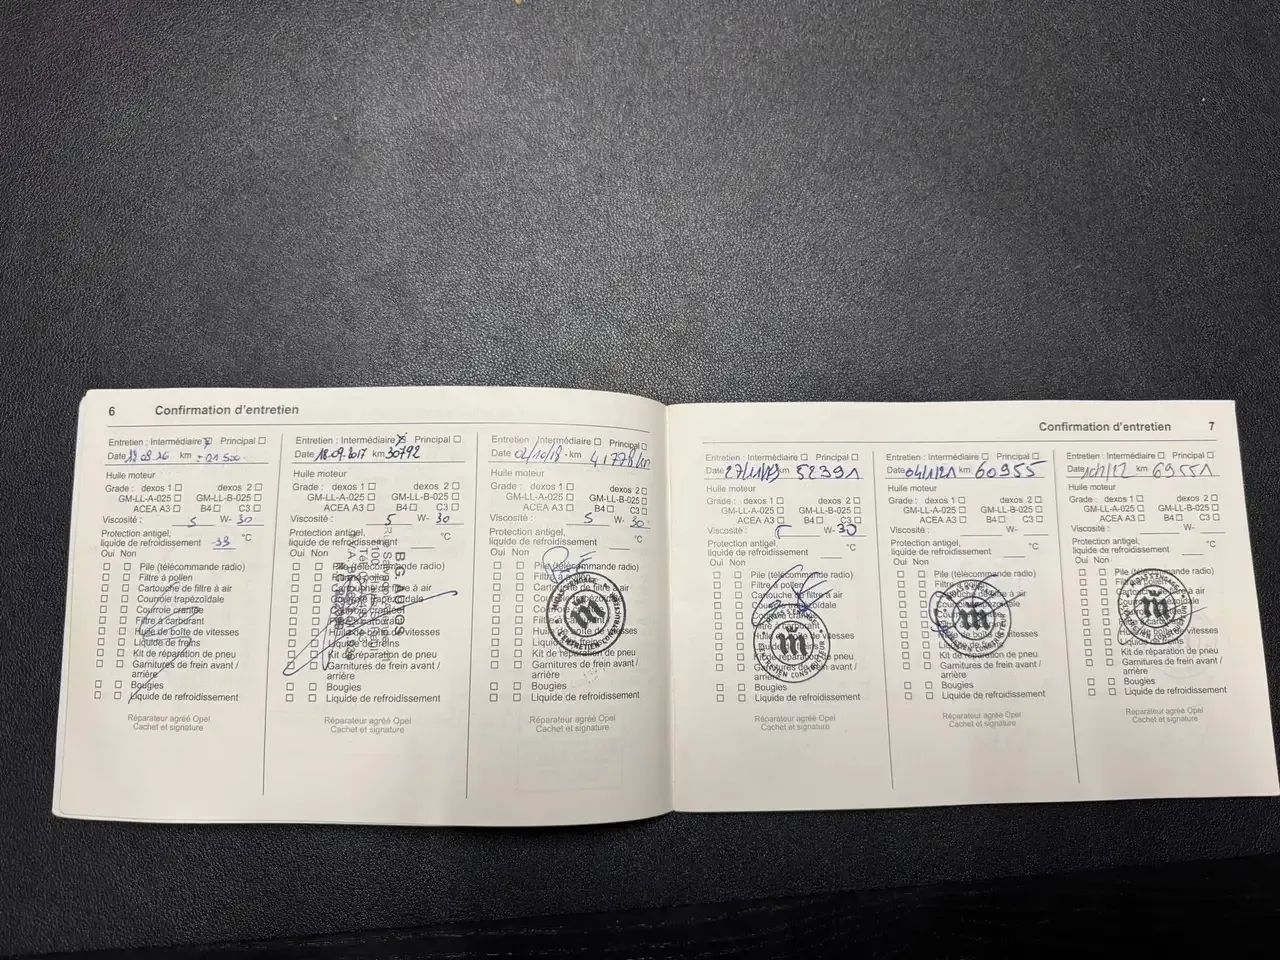 6 Confirmation d'entretien
Entretien : Intermédiaire Principal
Date km ± 21 500
Huile moteur
Grade : dexos 1 dexos 2
GM-LL-A-025 GM-LL-B-025
ACEA A3 B4 C3
Viscosité : 5 W- 30
Protection antigel,
liquide de refroidissement -33 °C
Oui Non
Pile (télécommande radio)
Filtre à pollen
Cartouche de filtre à air
Courroie trapézoïdale
Courroie crantée
Filtre à carburant
Huile de boîte de vitesses
Liquide de freins
Kit de réparation de pneu
Garnitures de frein avant /
arrière
Bougies
Liquide de refroidissement
Réparateur agréé Opel
Cachet et signature
Entretien : Intermédiaire Principal
Date 18.09.2017 km 30792
Huile moteur
Grade : dexos 1 dexos 2
GM-LL-A-025 GM-LL-B-025
ACEA A3 B4 C3
Viscosité : 5 W- 30
Protection antigel,
liquide de refroidissement °C
Oui Non
Pile (télécommande radio)
Filtre à pollen
Cartouche de filtre à air
Courroie trapézoïdale
Courroie crantée
Filtre à carburant
Huile de boîte de vitesses
Liquide de freins
Kit de réparation de pneu
Garnitures de frein avant /
arrière
Bougies
Liquide de refroidissement
B.G. AUTOS
Réparateur agréé Opel
Cachet et signature
Entretien : Intermédiaire Principal
Date 02/10/18 km 41778 km
Huile moteur
Grade : dexos 1 dexos 2
GM-LL-A-025 GM-LL-B-025
ACEA A3 B4 C3
Viscosité : 5 W- 30
Protection antigel,
liquide de refroidissement °C
Oui Non
Pile (télécommande radio)
Filtre à pollen
Cartouche de filtre à air
Courroie trapézoïdale
Huile de boîte de vitesses
Liquide de freins
Kit de réparation de pneu
Garnitures de frein avant /
arrière
Bougies
Liquide de refroidissement
m
ENTRETIEN CONSTRUCTEUR
Réparateur agréé Opel
Cachet et signature
Confirmation d'entretien 7
Entretien : Intermédiaire Principal
Date 27/11/19 km 52391
Huile moteur
Grade : dexos 1 dexos 2
GM-LL-A-025 GM-LL-B-025
ACEA A3 B4 C3
Viscosité : 5 W- 30
Protection antigel,
liquide de refroidissement °C
Oui Non
Pile (télécommande radio)
Filtre à pollen
Cartouche de filtre à air
Courroie trapézoïdale
Courroie crantée
Filtre à carburant
Huile de boîte de vitesses
Liquide de freins
Kit de réparation de pneu
Garnitures de frein avant /
arrière
Bougies
Liquide de refroidissement
m
ENTRETIEN CONSTRUCTEUR
Réparateur agréé Opel
Cachet et signature
Entretien : Intermédiaire Principal
Date km 60955
Huile moteur
Grade : dexos 1 dexos 2
GM-LL-A-025 GM-LL-B-025
ACEA A3 B4 C3
Viscosité : W-
Protection antigel,
liquide de refroidissement °C
Oui Non
Pile (télécommande radio)
Filtre à pollen
Cartouche de filtre à air
Courroie trapézoïdale
Courroie crantée
Filtre à carburant
Huile de boîte de vitesses
Liquide de freins
Kit de réparation de pneu
Garnitures de frein avant /
arrière
Bougies
Liquide de refroidissement
m
Réparateur agréé Opel
Cachet et signature
Entretien : Intermédiaire Principal
Date km 69551
Huile moteur
Grade : dexos 1 dexos 2
GM-LL-A-025 GM-LL-B-025
ACEA A3 B4 C3
Viscosité : W-
Protection antigel,
liquide de refroidissement °C
Oui Non
Pile (télécommande radio)
Filtre à pollen
Cartouche de filtre à air
Courroie trapézoïdale
Courroie crantée
Filtre à carburant
Huile de boîte de vitesses
Liquide de freins
Kit de réparation de pneu
Garnitures de frein avant /
arrière
Bougies
Liquide de refroidissement
m
Réparateur agréé Opel
Cachet et signature